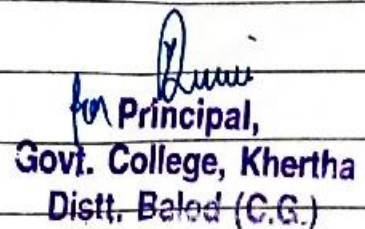 for Principal,
Govt. College, Khertha
Distt. Balod (C.G.)